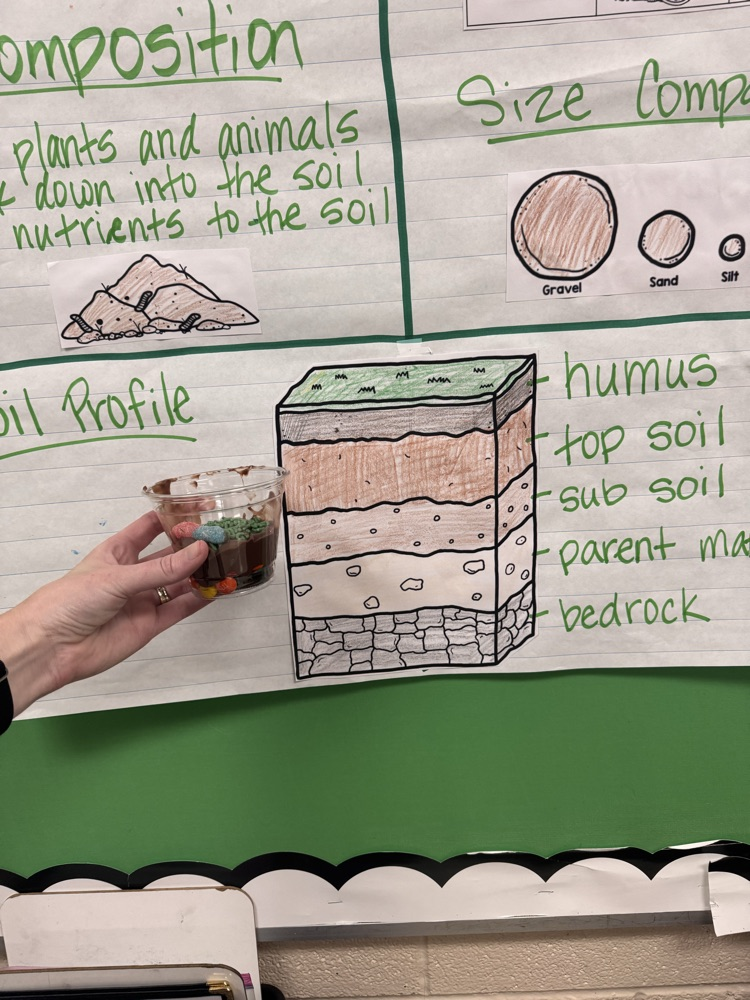 omposition
plants and animals
down into the soil
nutrients to the soil
Size Comp
Gravel
Sand
Silt
oil Profile
humus
top soil
sub soil
parent ma
bedrock